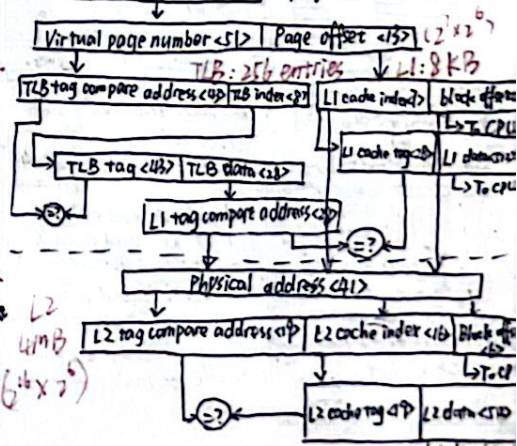 Virtual page number <51> Page offset <13> (2^7 x 2^6)
TLB: 256 entries L1: 8KB
TLB tag compare address <43> TLB index <8> L1 cache index <7> block offset
To CPU
TLB tag <43> TLB data <28> L1 cache tag <28> L1 data <512>
To CPU
=?
L1 tag compare address <28> =?
Physical address <41>
L2
4MB
L2 tag compare address <19> L2 cache index <16> Block offset
<6>
(2^16 x 2^6) To CP
=? L2 cache tag <19> L2 data <512